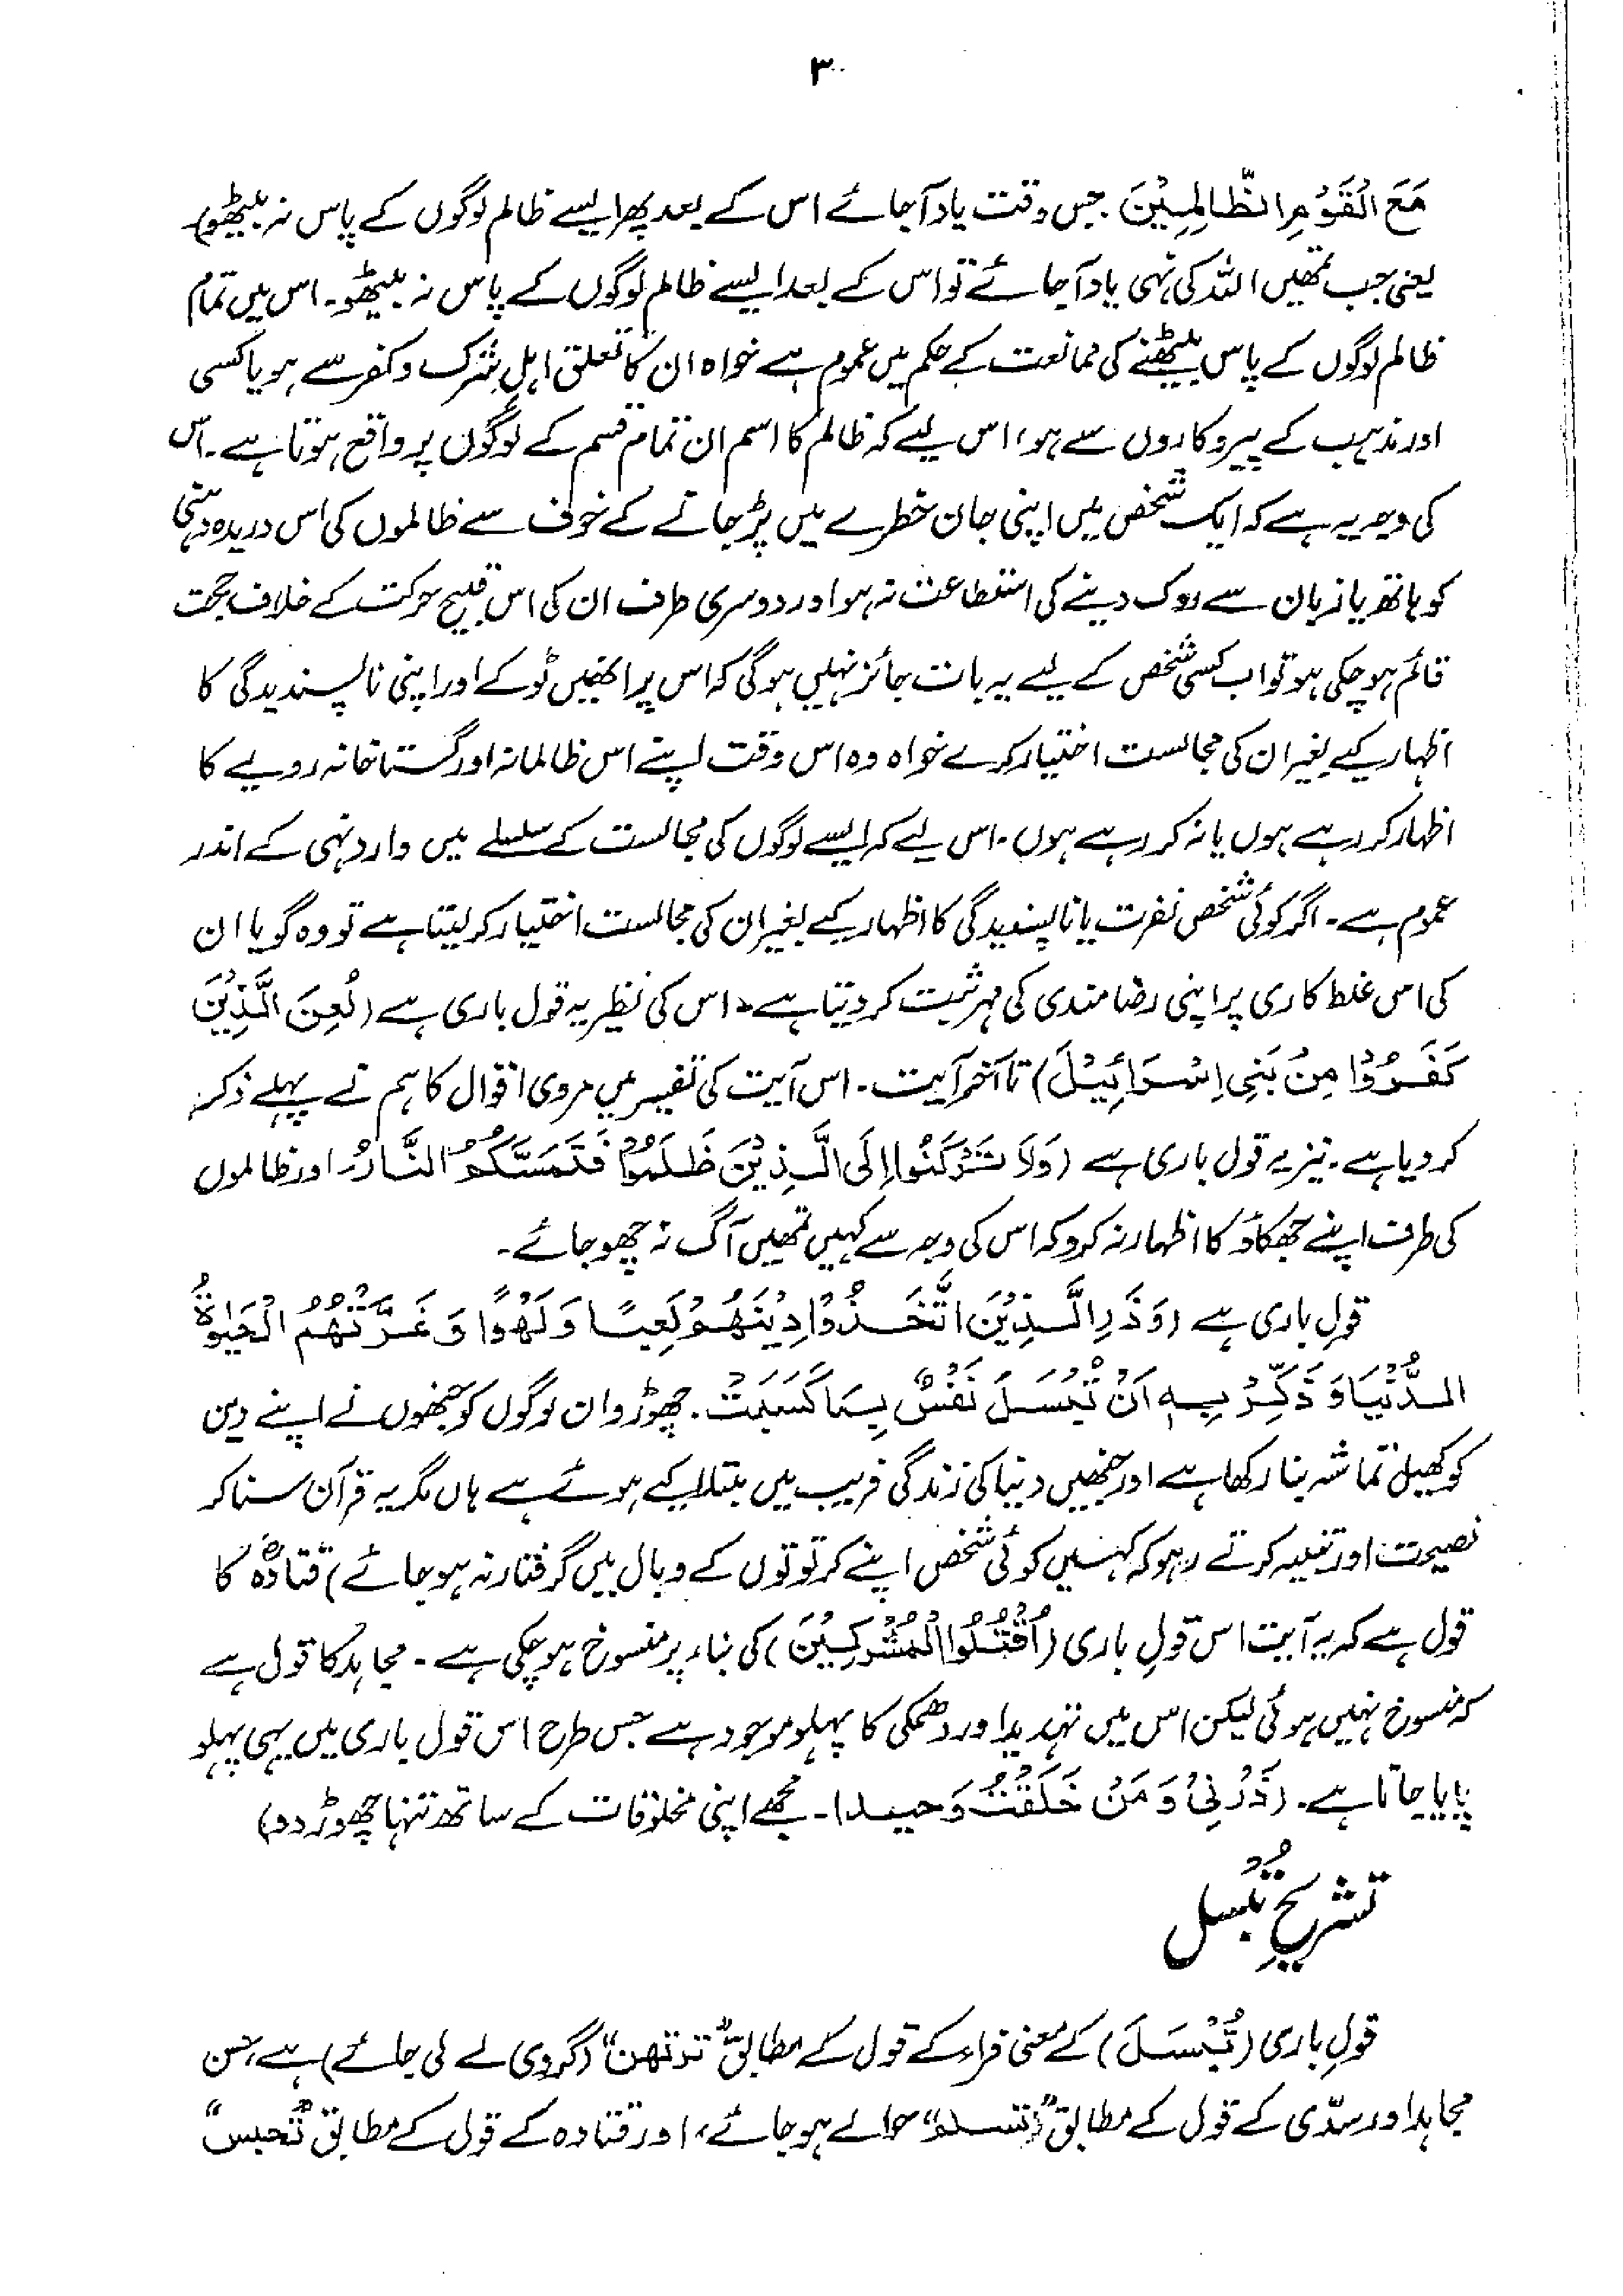 ۳
مَعَ الْقَوْمِ الظَّالِمِيْنَ۔ جس وقت یاد آجائے اس کے بعد پھر ایسے ظالم لوگوں کے پاس نہ بیٹھو)
یعنی جب تمھیں اللہ کی نہی یاد آجائے تو اس کے بعد ایسے ظالم لوگوں کے پاس نہ بیٹھو۔ اس میں تمام
ظالم لوگوں کے پاس بیٹھنے کی ممانعت کے حکم میں عموم ہے خواہ ان کا تعلق اہلِ شرک و کفر سے ہو یا کسی
اور مذہب کے پیروکاروں سے ہو، اس لیے کہ ظالم کا اسم ان تمام قسم کے لوگوں پر واقع ہوتا ہے۔ اس
کی وجہ یہ ہے کہ ایک شخص میں اپنی جان خطرے میں پڑ جانے کے خوف سے ظالموں کی اس دریدہ دہنی
کو ہاتھ یا زبان سے روک دینے کی استطاعت نہ ہو اور دوسری طرف ان کی اس قبیح حرکت کے خلاف حجت
قائم ہو چکی ہو تو اب کسی شخص کے لیے یہ بات جائز نہیں ہوگی کہ اس پر انھیں ٹوکے اور اپنی ناپسندیدگی کا
اظہار کیے بغیر ان کی مجالست اختیار کرے خواہ وہ اس وقت اپنے اس ظالمانہ اور گستاخانہ رویے کا
اظہار کر رہے ہوں یا نہ کر رہے ہوں۔ اس لیے کہ ایسے لوگوں کی مجالست کے سلسلے میں وارد نہی کے اندر
عموم ہے۔ اگر کوئی شخص نفرت یا ناپسندیدگی کا اظہار کیے بغیر ان کی مجالست اختیار کر لیتا ہے تو وہ گویا ان
کی اس غلط کاری پر اپنی رضامندی کی مہر ثبت کر دیتا ہے۔ اس کی نظیر یہ قول باری ہے (لُعِنَ الَّذِيْنَ
كَفَرُوْا مِنْ بَنِي اِسْرَائِيْلَ) تا آخر آیت۔ اس آیت کی تفسیر میں مروی اقوال کا ہم نے پہلے ذکر
کر دیا ہے۔ نیز یہ قول باری ہے (وَلَا تَرْكَنُوْا اِلَى الَّذِيْنَ ظَلَمُوْا فَتَمَسَّكُمُ النَّارُ، اور ظالموں
کی طرف اپنے جھکاؤ کا اظہار نہ کرو کہ اس کی وجہ سے کہیں تمھیں آگ نہ چھو جائے۔
قولِ باری ہے (وَذَرِ الَّذِيْنَ اتَّخَذُوْا دِيْنَهُمْ لَعِبًا وَلَهْوًا وَغَرَّتْهُمُ الْحَيٰوةُ
الدُّنْيَا وَذَكِّرْ بِهٖ اَنْ تُبْسَلَ نَفْسٌ بِمَا كَسَبَتْ۔ چھوڑو ان لوگوں کو جنھوں نے اپنے دین
کو کھیل تماشہ بنا رکھا ہے اور جنھیں دنیا کی زندگی فریب میں مبتلا کیے ہوئے ہے ہاں مگر یہ قرآن سنا کر
نصیحت اور تنبیہ کرتے رہو کہ کہیں کوئی شخص اپنے کرتوتوں کے وبال میں گرفتار نہ ہو جائے) قتادہؒ کا
قول ہے کہ یہ آیت اس قولِ باری (اُقْتُلُوا الْمُشْرِكِيْنَ) کی بناء پر منسوخ ہو چکی ہے۔ مجاہد کا قول ہے
کہ منسوخ نہیں ہوئی لیکن اس میں تہدید اور دھمکی کا پہلو موجود ہے جس طرح اس قول باری میں یہی پہلو
پایا جاتا ہے۔ (ذَرْنِيْ وَمَنْ خَلَقْتُ وَحِيدا۔ مجھے اپنی مخلوقات کے ساتھ تنہا چھوڑ دو)
تشریح تُبْسل
قولِ باری (تُبْسَلَ) کے معنی فراء کے قول کے مطابق "ترتھن" (گروی لے لی جائے) ہے، حسن
مجاہد اور سدّی کے قول کے مطابق "تسلم" حوالے ہو جائے، اور قتادہ کے قول کے مطابق "تُحبس"